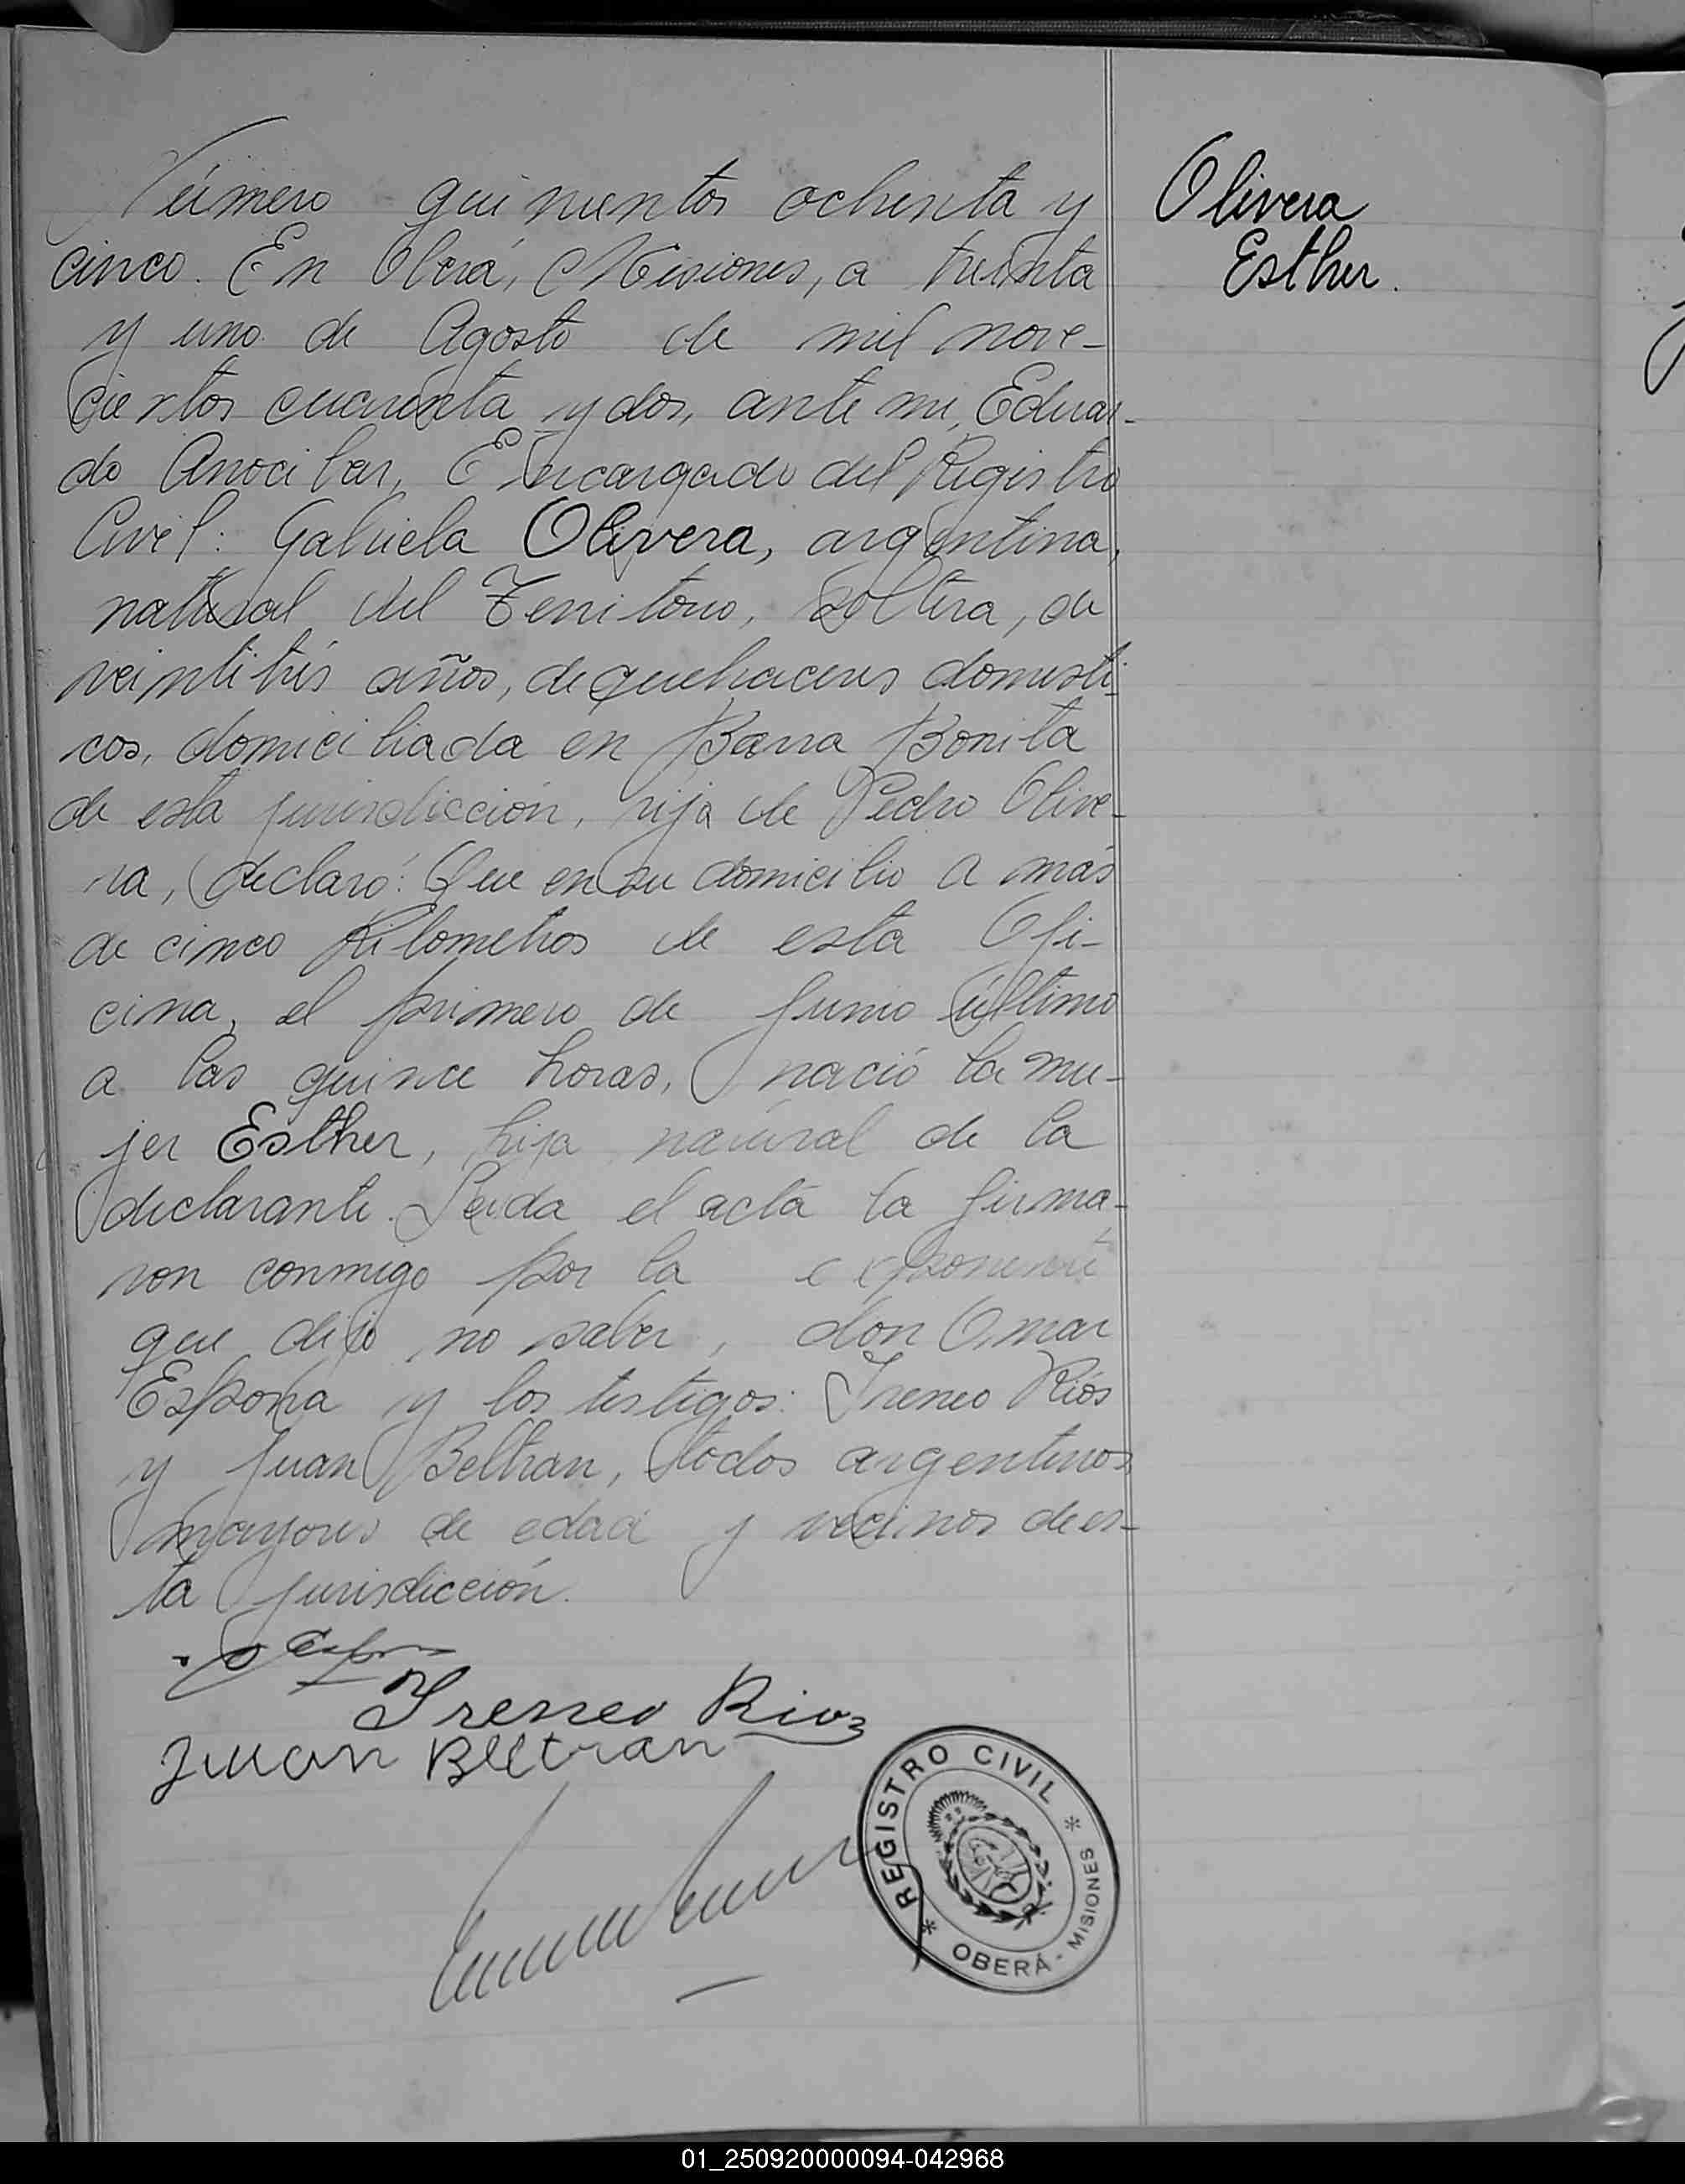 Número quinientos ochenta y
cinco. En Oberá, Misiones, a treinta
y uno de Agosto de mil nove-
cientos cuarenta y dos, ante mi, Eduar-
do Anocibar, Encargado del Registro
Civil: Gabriela Olivera, argentina,
natural del Territorio, soltera, de
veintitrés años, de quehaceres domesti-
cos, domiciliada en Barra Bonita
de esta jurisdicción, hija de Pedro Olive-
ra, declaró: Que en su domicilio a más
de cinco kilometros de esta Ofi-
cina, el primero de Junio último
a las quince horas, nació la mu-
jer Esther, hija natural de la
declarante. Leida el acta la firma-
ron conmigo por la exponente
que dijo no saber, don Omar
Espona y los testigos: Ireneo Riós
y Juan Beltran, todos argentinos
mayores de edad y vecinos de es-
ta jurisdicción.
Ireneo Rios
Juan Beltran
Olivera
Esther.
* REGISTRO CIVIL *
OBERÁ - MISIONES
01_250920000094-042968